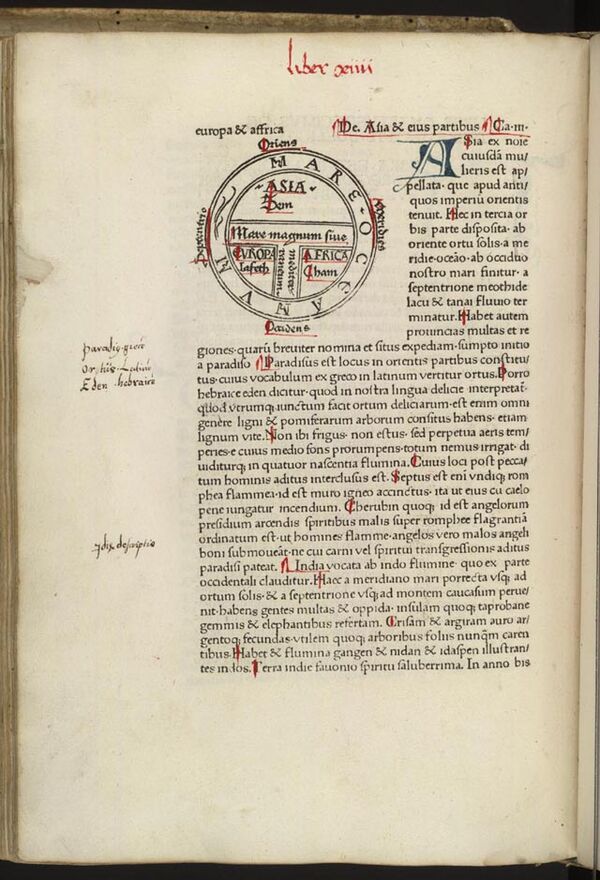 liber xiiii
europa & affrica
De. Asia & eius partibus Ca. iii
Oriens
MARE OCEANVM
Septentrio
Meridies
ASIA
Sem
Mare magnum siue
EVROPA
Iafeth
mediterraneum
AFRICA
Cham
Occidens
Asia ex noīe
cuiusdā mu/
lieris est ap/
pellata. que apud anti/
quos imperiū orientis
tenuit. Hec in tercia or
bis parte disposita. ab
oriente ortu solis. a me
ridie. oceāo. ab occiduo
nostro mari finitur. a
septentrione meothide
lacu & tanai fluuio ter
minatur. Habet autem
prouincias multas et re
giones. quarū breuiter nomina et situs expediam. sumpto initio
a paradiso Paradisus est locus in orientis partibus constitu/
tus. cuius vocabulum ex greco in latinum vertitur ortus. Porro
hebraice eden dicitur. quod in nostra lingua delicie interpretat̄
quod vtrumq; iunctum facit ortum deliciarum. est enim omni
genere ligni & pomiferarum arborum consitus habens. etiam
lignum vite. Non ibi frigus. non estus. sed perpetua aeris tem/
peries. e cuius medio fons prorumpens. totum nemus irrigat. di
uiditurq; in quatuor nascentia flumina. Cuius loci post pecca/
tum hominis aditus interclusus est. Septus est enī vndiq; rom
phea flammea. id est muro igneo accinctus. ita ut eius cum caelo
pene iungatur incendium. Cherubin quoq; id est angelorum
presidium arcendis spiritibus malis super romphee flagrantiā
ordinatum est. ut homines flamme. angelos vero malos angeli
boni submoueāt. ne cui carni vel spiritui transgressionis aditus
paradisi pateat. India vocata ab indo flumine. quo ex parte
occidentali clauditur. Haec a meridiano mari porrecta vsq; ad
ortum solis. & a septentrione vsq; ad montem caucasum perue/
nit. habens gentes multas & oppida. insulam quoq; taprobane
gemmis & elephantibus refertam. Crisam & argiram auro ar/
gentoq; fecundas. vtilem quoq; arboribus foliis nunqm̄ caren
tibus. Habet & flumina gangen & nidan & idaspen illustran/
tes indos. Terra indie fauonio spiritu saluberrima. In anno bis
paradis. grece
Ortus. Latine
Eden hebraice
Indie descriptio